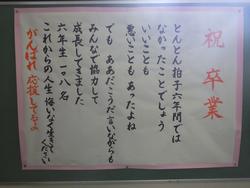 祝 卒業
とんとん拍子六年間では
なかったことでしょう
いいことも
悪いことも あったよね
でも ああだこうだ言いながらも
みんなで協力して
成長してきました
六年生一〇八名
これからの人生 悔いなく生きてください
がんばれ 応援してるよ